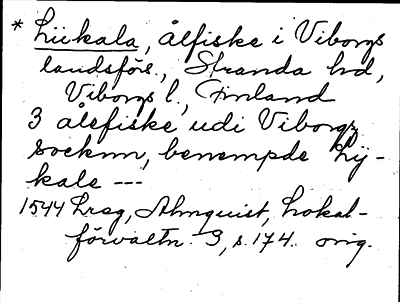 * Liikala, ålfiske i Viborgs
landsförs., Stranda hd,
Viborgs l., Finland
3 ålefiske udi Viborgz
socknn, benempde Lij-
kale ---
1544 Lreg, Almquist, Lokal-
förvaltn. 3, s. 174. orig.